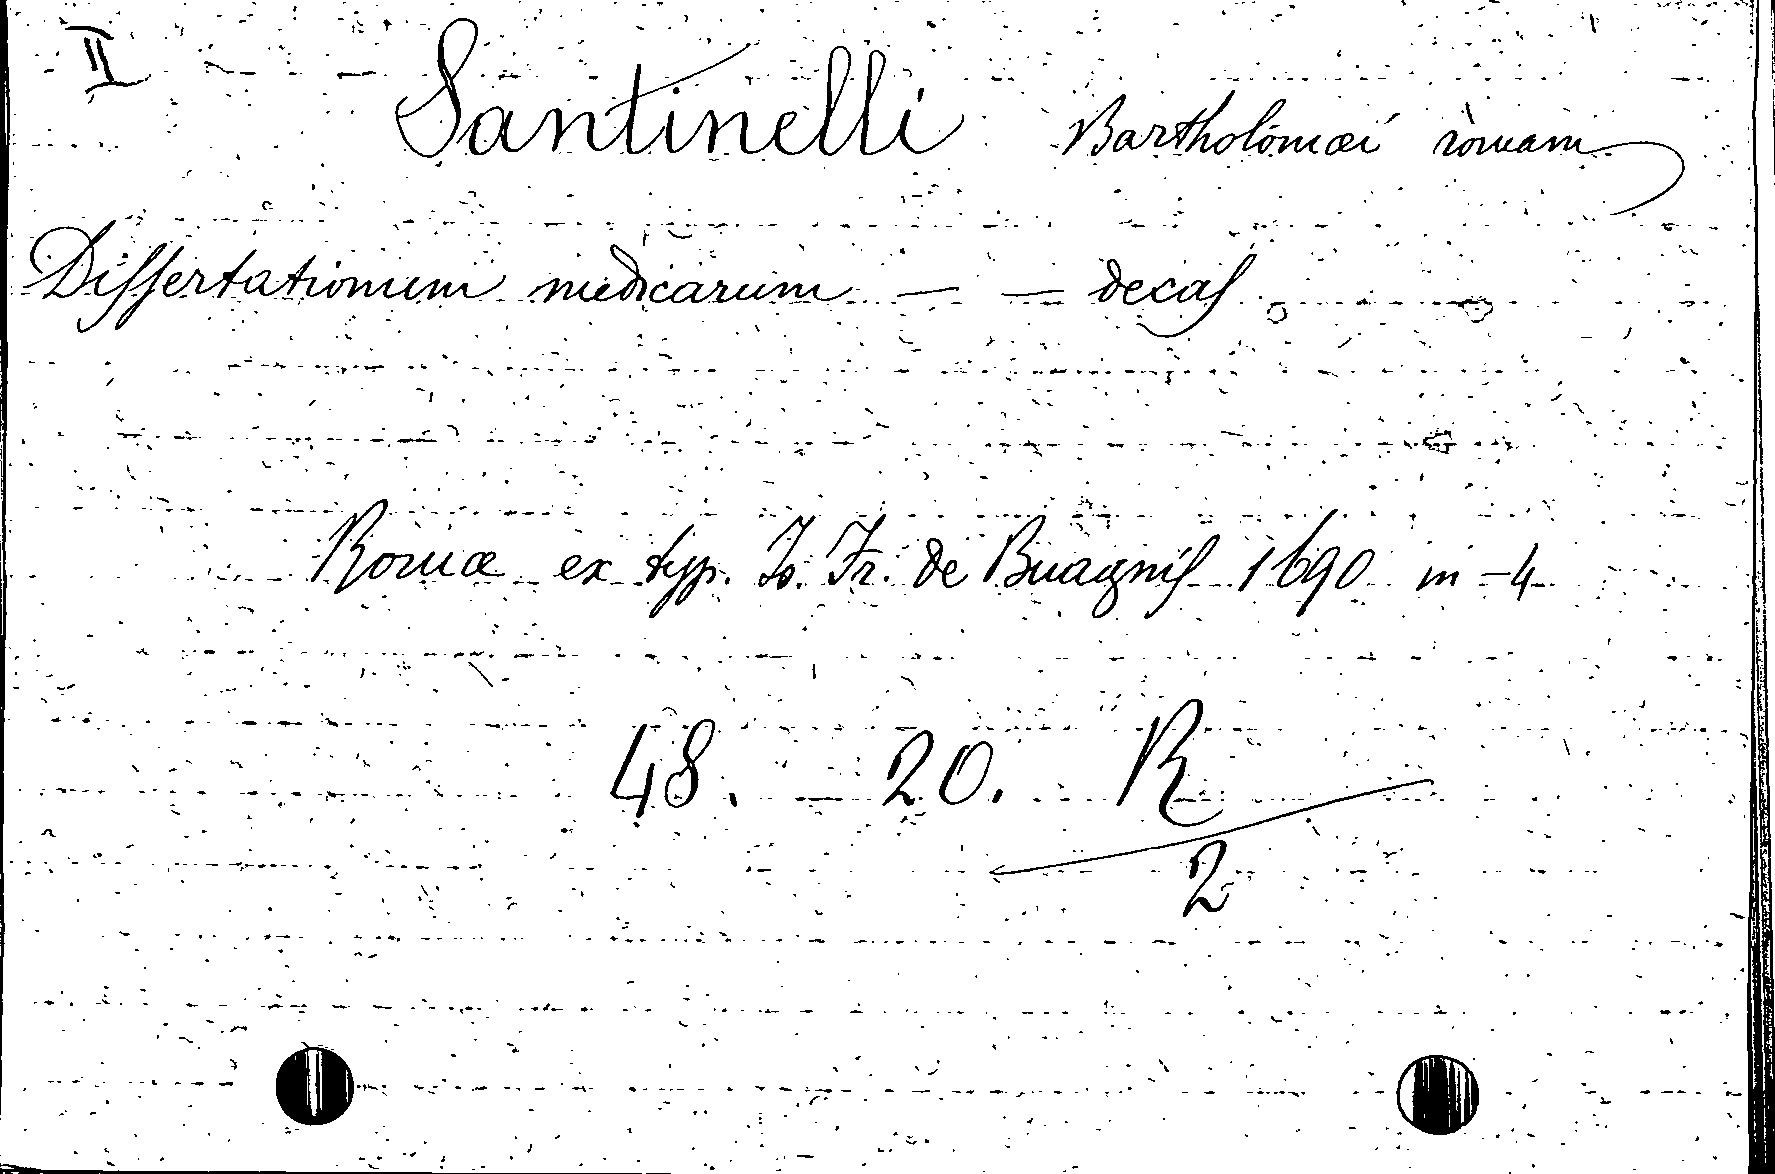 II
Santinelli Bartholomæi romani
Dissertationum medicarum — — decas
Romæ ex typ. Jo. Fr. de Buagnis 1690 in-4
48. 20. R
2